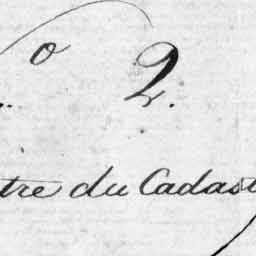 o 2.
tre du Cadast